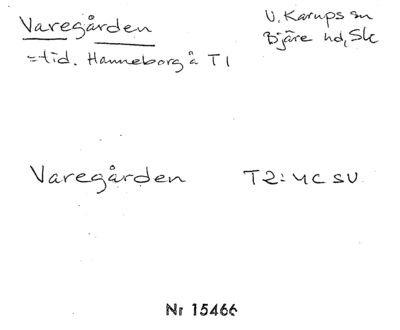 Varegården
V. Karups sn
Bjäre hd, Sk
=tid. Hanneborg å T1
Varegården T2: 4C SV
Nr 15466